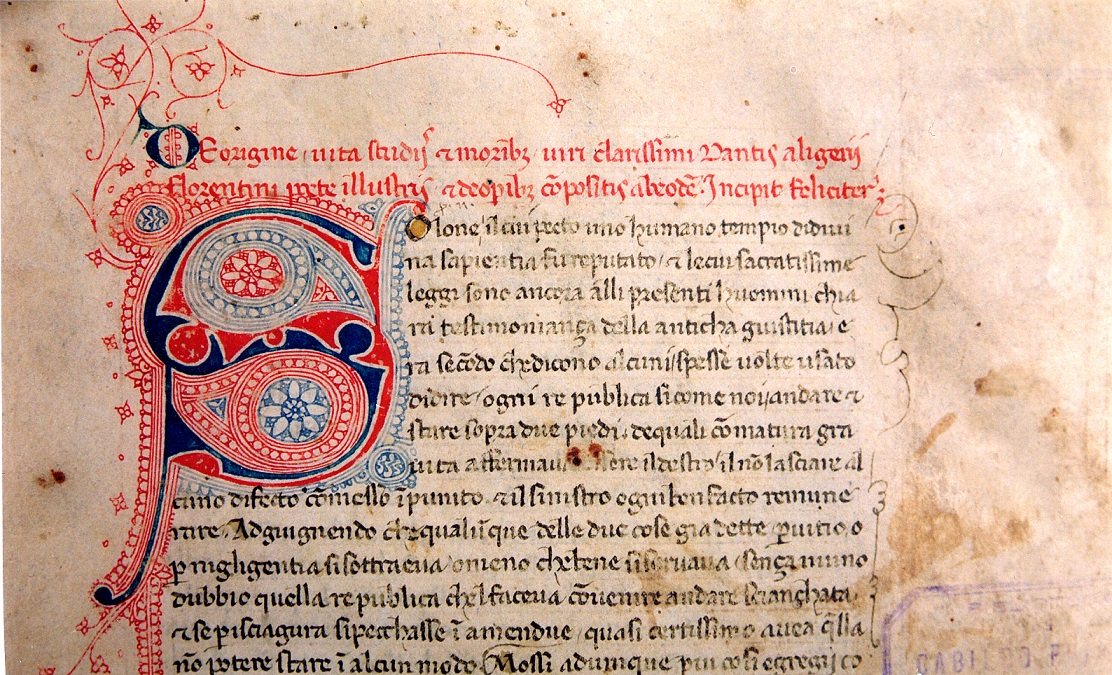 De origine vita studijs & moribz viri clarissimi Dantis aligerii
florentini poete illustris & de opibz cōpositis ab eodē. Incipit feliciter.
Solone il cui pecto uno humano tempio di divi
na sapientia fu reputato & le cui sacratissime
leggi sono ancora alli presenti huomini chia
ra testimonianza della anticha giustitia e
ra secōdo che dicono alcuni spesse volte usato
di dire ogni re publica si come noi andare &
stare sopra due piedi de quali cō matura gra
vita affermava essere il destro il nō lasciare al
cuno difecto cōmesso īpunito & il sinistro ogni ben facto remune
rare. Adgiugnendo che qualūque delle due cose gia dette p vitio o
p nigligentia si sottraeva o meno che bene si servava senza niuno
dubbio quella re publica chel faceva cōvenire andare scianchata
& se p isciagura si pecchasse ī amendue quasi certissimo avea q̄lla
nō potere stare ī alcun modo. Mossi adumque piu cosi egregij co
CABILDO